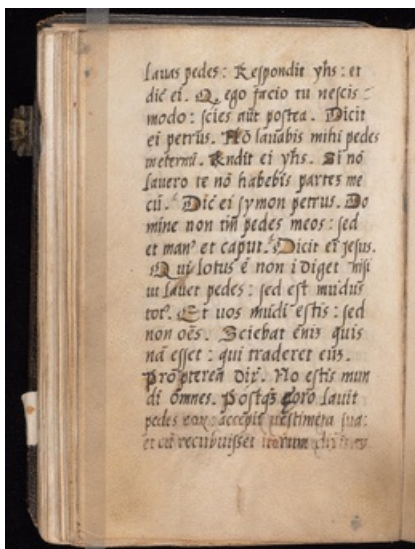 lauas pedes: Respondit yħs: et
dic̄ ei. Q, ego facio tu nescis
modo: scies aūt postea. Dicit
ei petrus. Nō lauabis mihi pedes
ineternū. Rndit ei yħs. Si nō
lauero te nō habebis partez me
cū. Dic̄ ei symon petrus. Do
mine non tm̄ pedes meos: sed
et manꝰ et caput. Dicit ei jesus.
Qui lotus ē non īdiget nisi
ut lauet pedes: sed est mūdus
totꝰ. Et uos mūdi estis: sed
non oēs. Sciebat eniz quis
nā esset: qui traderet euz.
Propterea dix̄. No estis mun
di omnes. Postq̄z ergo lauit
pedes eoꝝ: accepit uestimēta sua:
et cū recubuisset iterum